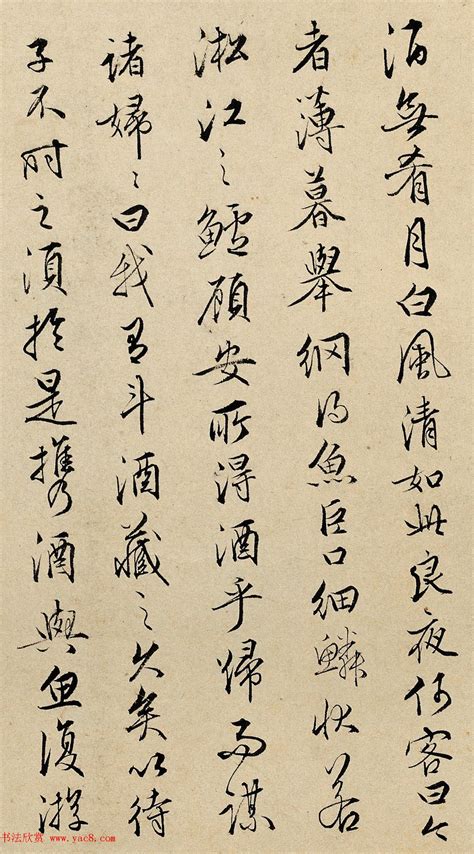 酒無肴月白風清如此良夜何客曰今
者薄暮舉網得魚巨口細鱗狀若
淞江之鱸顧安所得酒乎歸而謀
諸婦〻曰我有斗酒藏之久矣以待
子不時之須於是攜酒與魚復游
书法欣赏 www.yac8.com